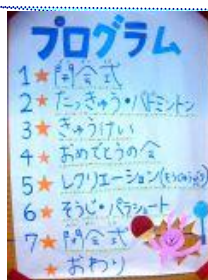 プログラム
1★開会式
2★たっきゅう・バドミントン
3★きゅうけい
4★おめでとうの会
5★レクリエーション
6★そうじ・パラシュート
7★閉会式
★おわり